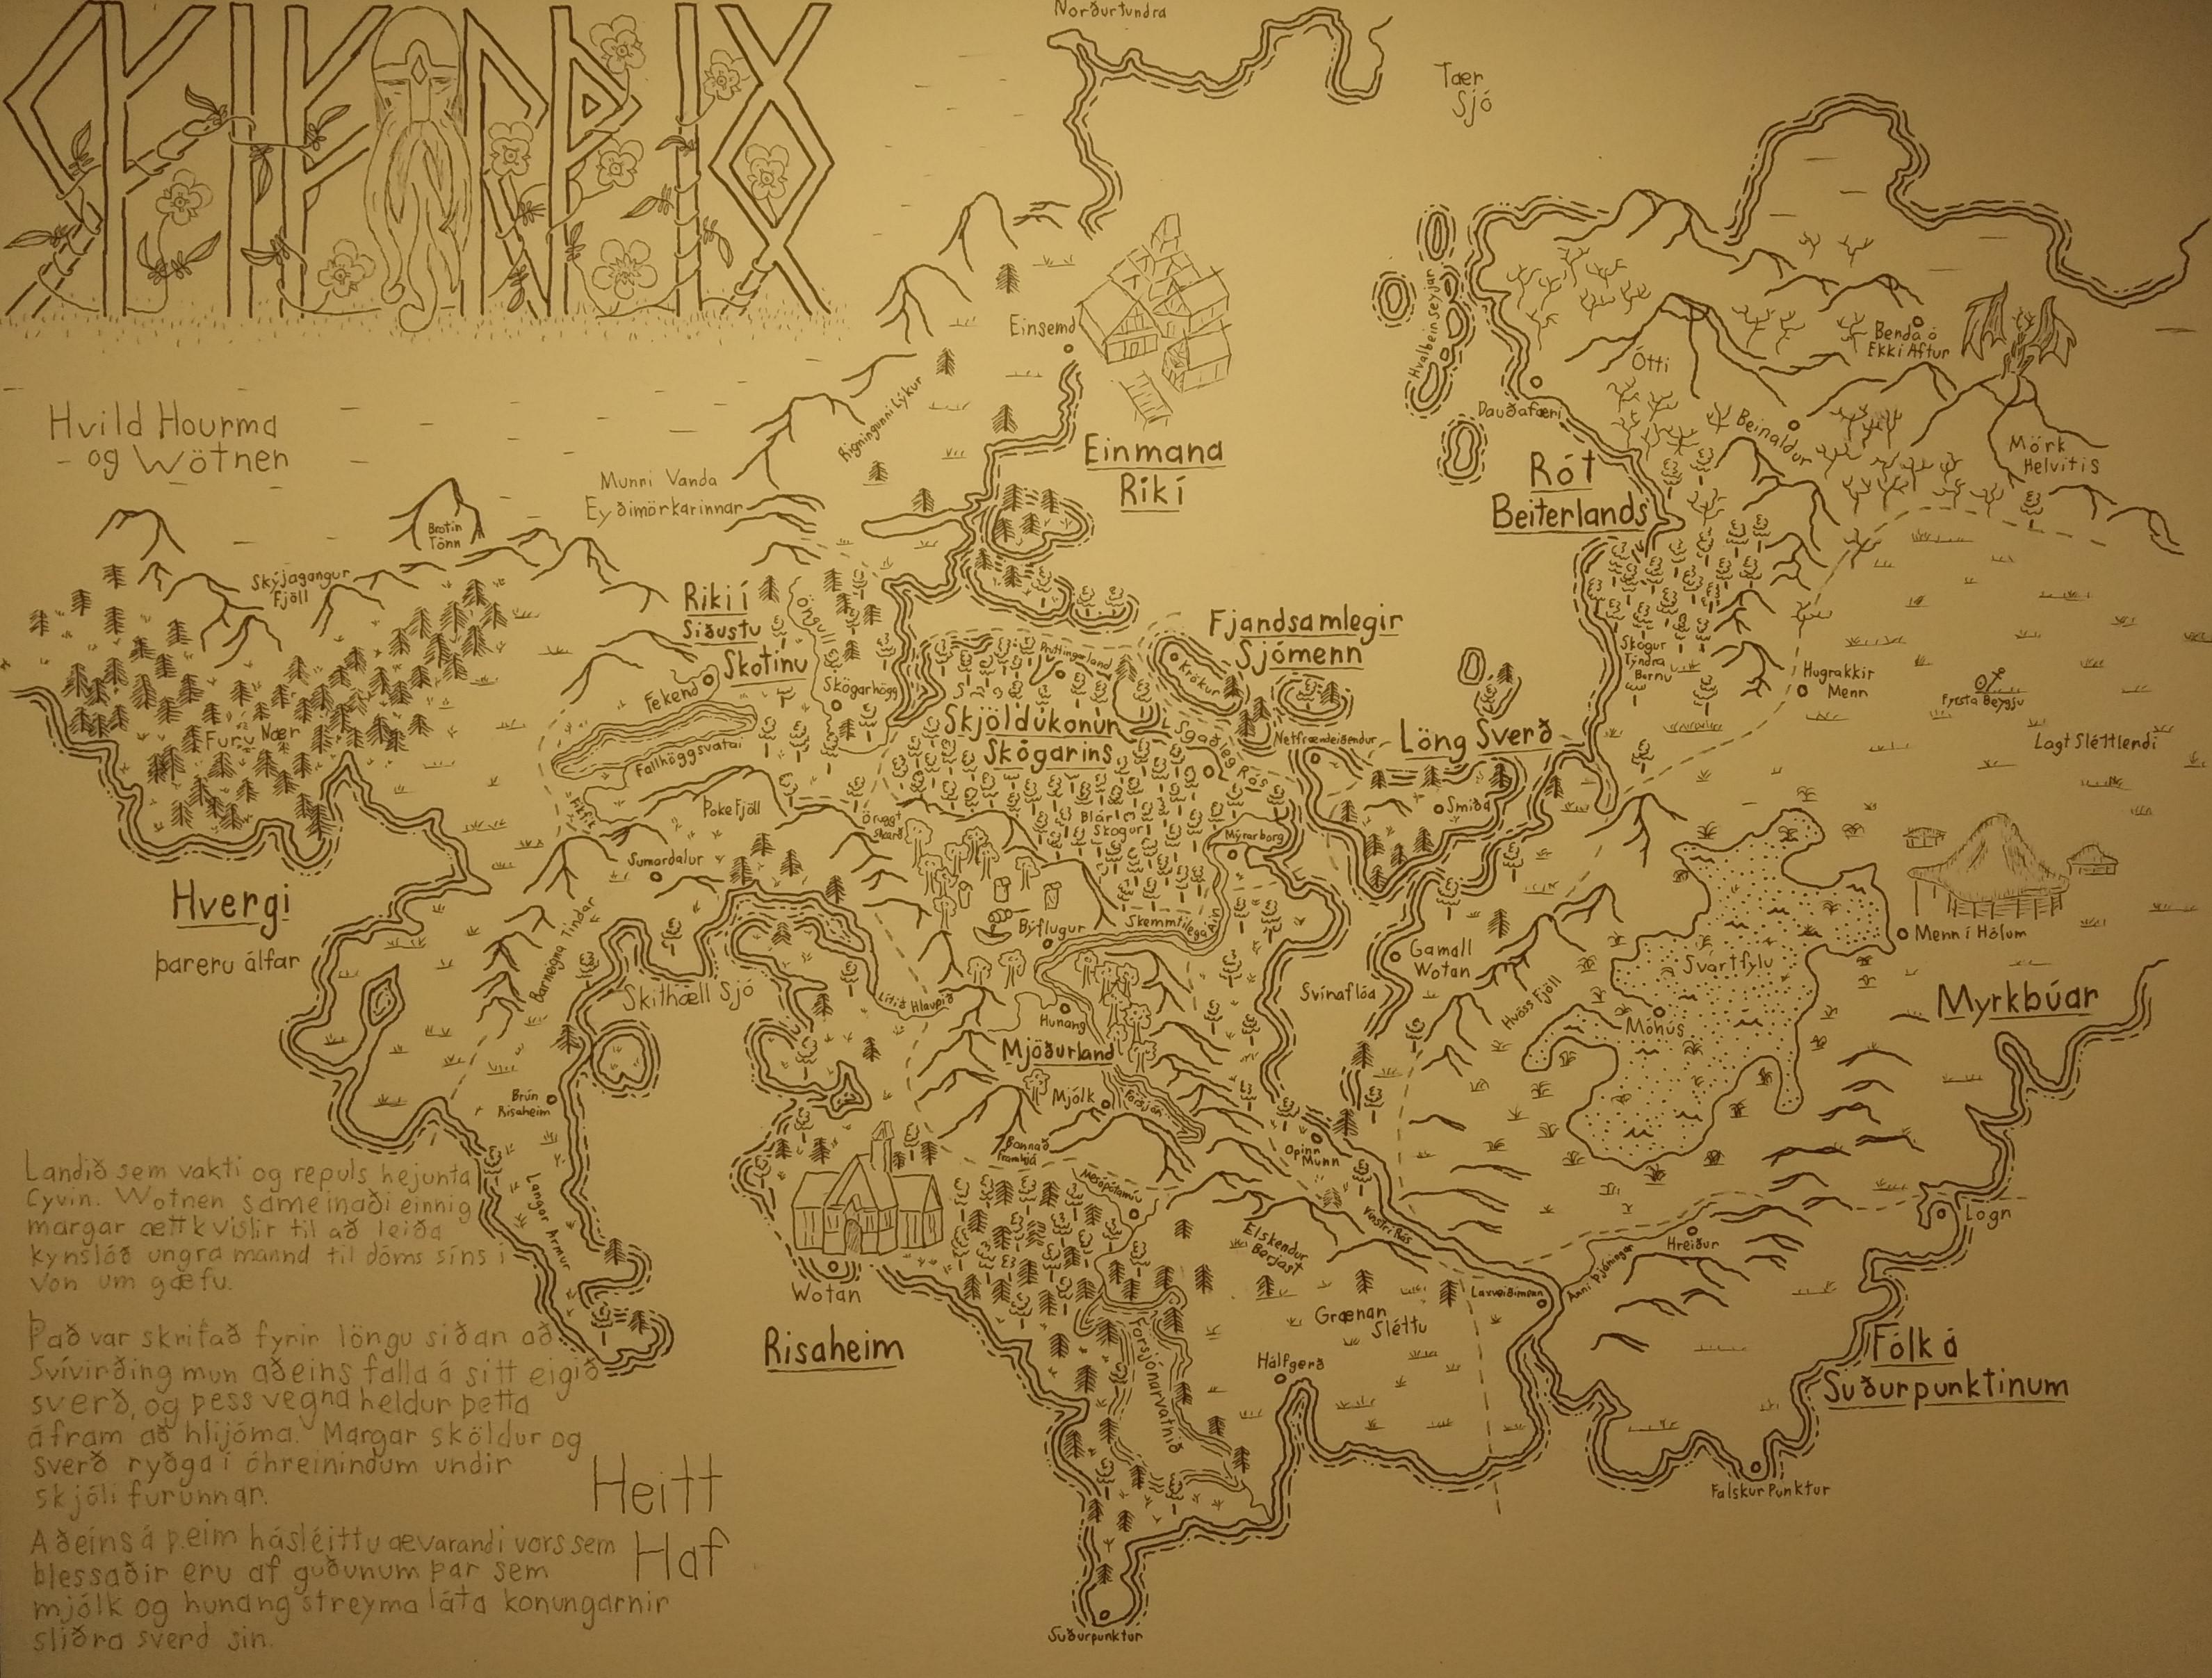 Norðurtundra
Tær
Sjó
Hvild Hourma
og Wötnen
Einsemd
Rigningunni Lýkur
Einmana
Ríkí
Munni Vanda
Eyðimörkarinnar
Hvalbeinseyjar
Ótti
Benda ó
Ekki Aftur
Dauðafæri
Beinaldur
Mörk
Helvitis
Rót
Beiterlands
Brotin
Tönn
Skýjagangur
Fjöll
Ríki í
Siðustu
Skotinu
Öngull
Fjandsamlegir
Sjómenn
Krókur
Skogur
Týndra
Barnu
Hugrakkir
Menn
Fyrsta Beygju
Lagt Sléttlendi
Fekend
Skógarhögg
Skjöldukonur
Skógarins
Löng Sverð
Furu Nær
Fallhöggsvatai
Poke Fjöll
Öruggt
Skarð
Blárlm
Skogur
Smiðą
Mýrarborg
Sumardalur
Hvergi
þareru álfar
Barneigna Tindar
Skithæll Sjó
Litið Hlaupið
Býflugur
Skemmtilega Áin
Gamall
Wotan
Svínaflóa
Hvöss Fjöll
Svartfylu
Menn í Hólum
Móhús
Myrkbúar
Hunang
Mjöðurland
Mjólk
Forsjón
Brún
Risaheim
Bannað
framhjá
Opinn
Munn
Mesópótamíu
Langar Armur
Vinstri Rás
Elskendur
Barjast
Hreiður
Logn
Anni Þjóningar
Laxveiðimenn
Wotan
Risaheim
Grænan
Sléttu
Forsjónarvatnið
Hálfgerð
Fólk á
Suðurpunktinum
Falskur Punktur
Suðurpunktur
Heitt
Haf
Landið sem vakti og repuls hejunta
Cyvin. Wotnen sameinaði einnig
margar ættkvislir til að leiða
kynslóð ungra mannd til dóms síns í
von um gæfu.
Það var skrifað fyrir löngu siðan að
Svívirðing mun aðeins falla á sitt eigið
sverð, og þess vegna heldur þetta
áfram að hlijóma. Margar sköldur og
sverð ryðga í óhreinindum undir
skjóli furunnar.
Aðeins á þeim hásléittu ævarandi vors sem
blessaðir eru af guðunum þar sem
mjólk og hunang streyma láta konungarnir
sliðra sverd sin.